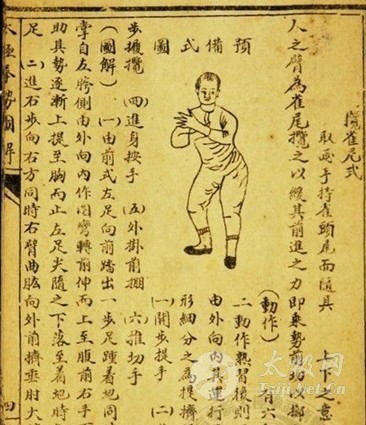 攬雀尾式
取兩手持雀頭尾而隨其 下之意
人之臂為雀尾攬之以緩其前進之力即乘勢前切以擲
預備式圖
(動作) 有六
二動作熟習後則
由外向內其進行
形細分之為提擠
㈠開步提手 ㈡
步攬 ㈣進身按手 ㈤外掛前掤 ㈥推切手
(圖解) ㈠由前式左足向前踏出一步足踵着地同
掌自左胯側由外向內作圈彎轉前伸而上至腹前右手
助其勢逐漸上提至胸而止左足尖隨之下落至着地時
足 ㈡進右步向右方同時右臂曲肱向外前擠垂肘大
太極拳勢圖解 四
太极网
Taiji.net.cn